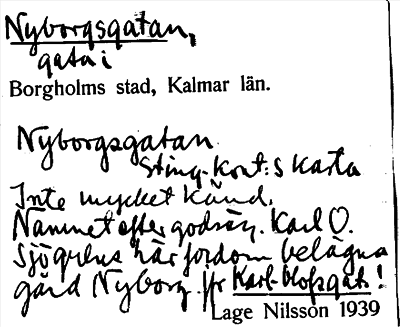 Nyborgsgatan,
gata i
Borgholms stad, Kalmar län.
Nyborgsgatan
Sting.-kont:s karta
Inte mycket känd.
Namnet efter godsäg. Karl O.
Sjögrens här fordom belägna
gård Nyborg. jfr Karl-Olofsgat.!
Lage Nilsson 1939